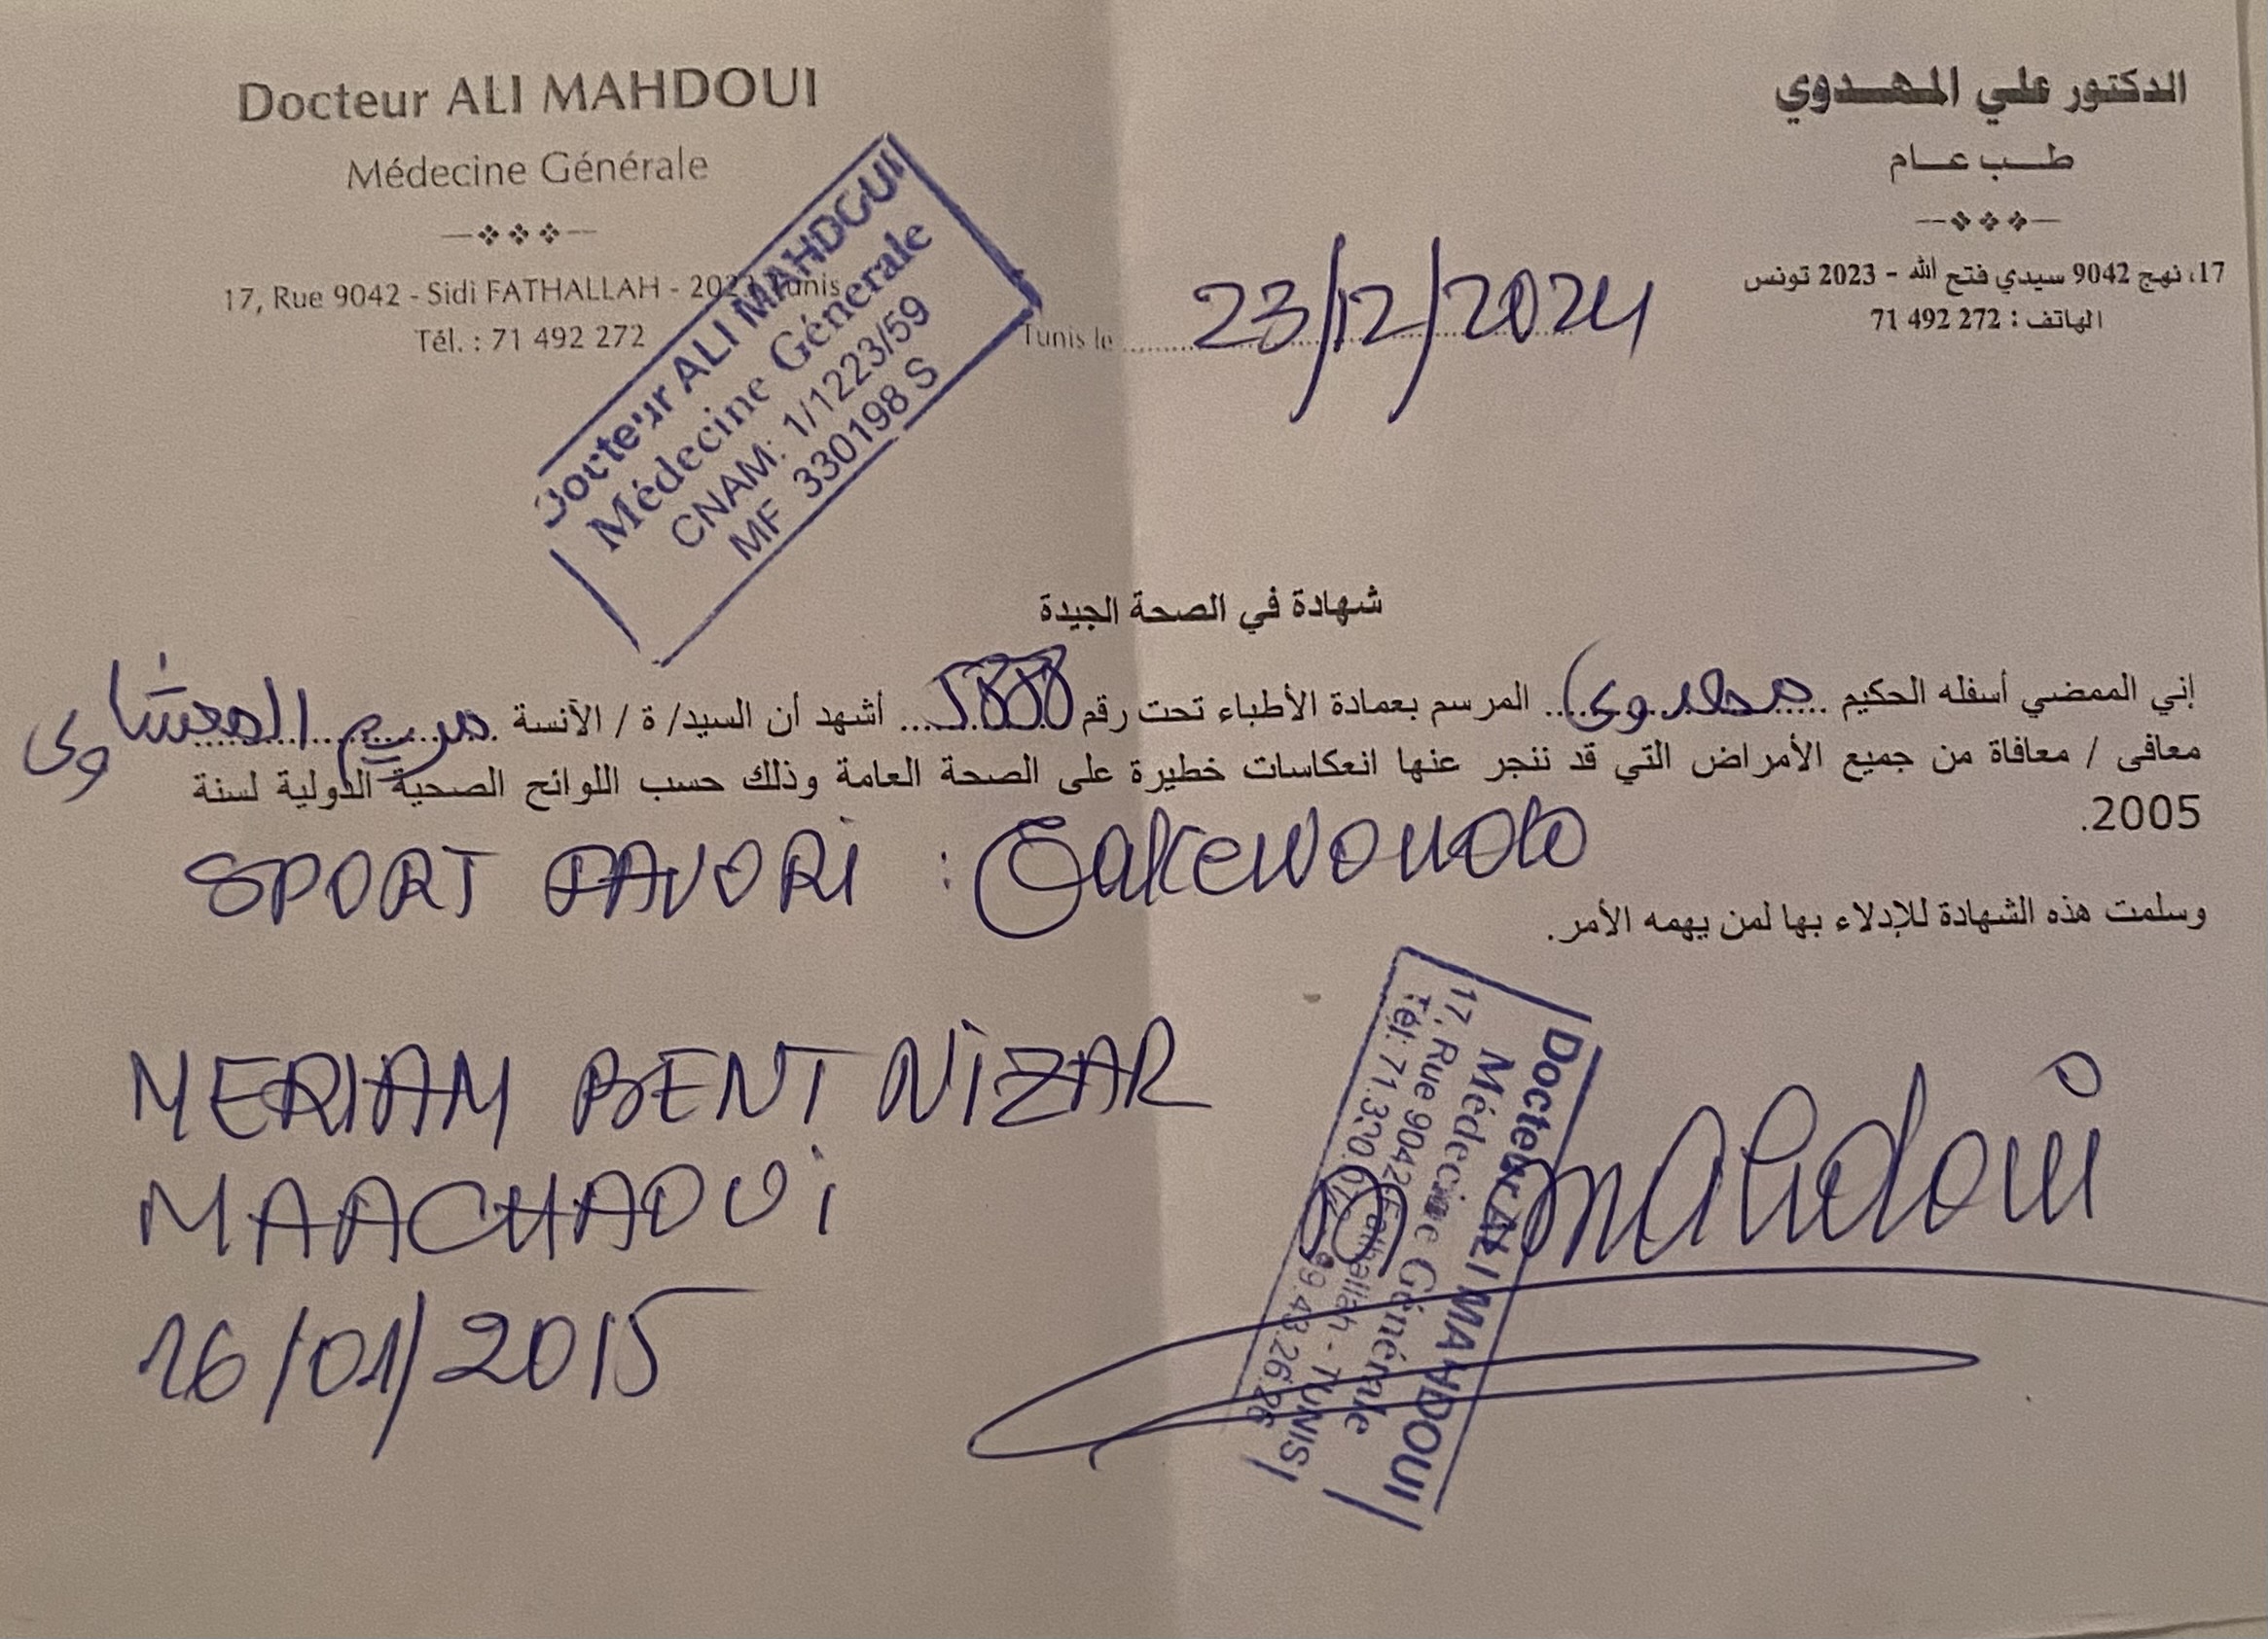 Docteur ALI MAHDOUI
Médecine Générale
17, Rue 9042 - Sidi FATHALLAH - 2023 Tunis
Tél. : 71 492 272
الدكتور علي المهدوي
طب عام
17، نهج 9042 سيدي فتح الله - 2023 تونس
الهاتف : 272 492 71
Docteur ALI MAHDOUI
Médecine Générale
CNAM: 1/1223/59
MF 330198 S
Tunis le 23/12/2024
شهادة في الصحة الجيدة
إني الممضي أسفله الحكيم مهدوي المرسم بعمادة الأطباء تحت رقم أشهد أن السيد/ ة / الآنسة مريم المعشاوي
معافى / معافاة من جميع الأمراض التي قد ننجر عنها انعكاسات خطيرة على الصحة العامة وذلك حسب اللوائح الصحية الدولية لسنة
2005.
SPORT FAVORI :
وسلمت هذه الشهادة للإدلاء بها لمن يهمه الأمر.
MERIAM BENT NIZAR
MAACHAOUI
16/01/2015
Docteur ALI MAHDOUI
Médecine Générale
17, Rue 9042 Fathallah - TUNIS
Tél: 71.330. 99.43.26.26
Mahdoui